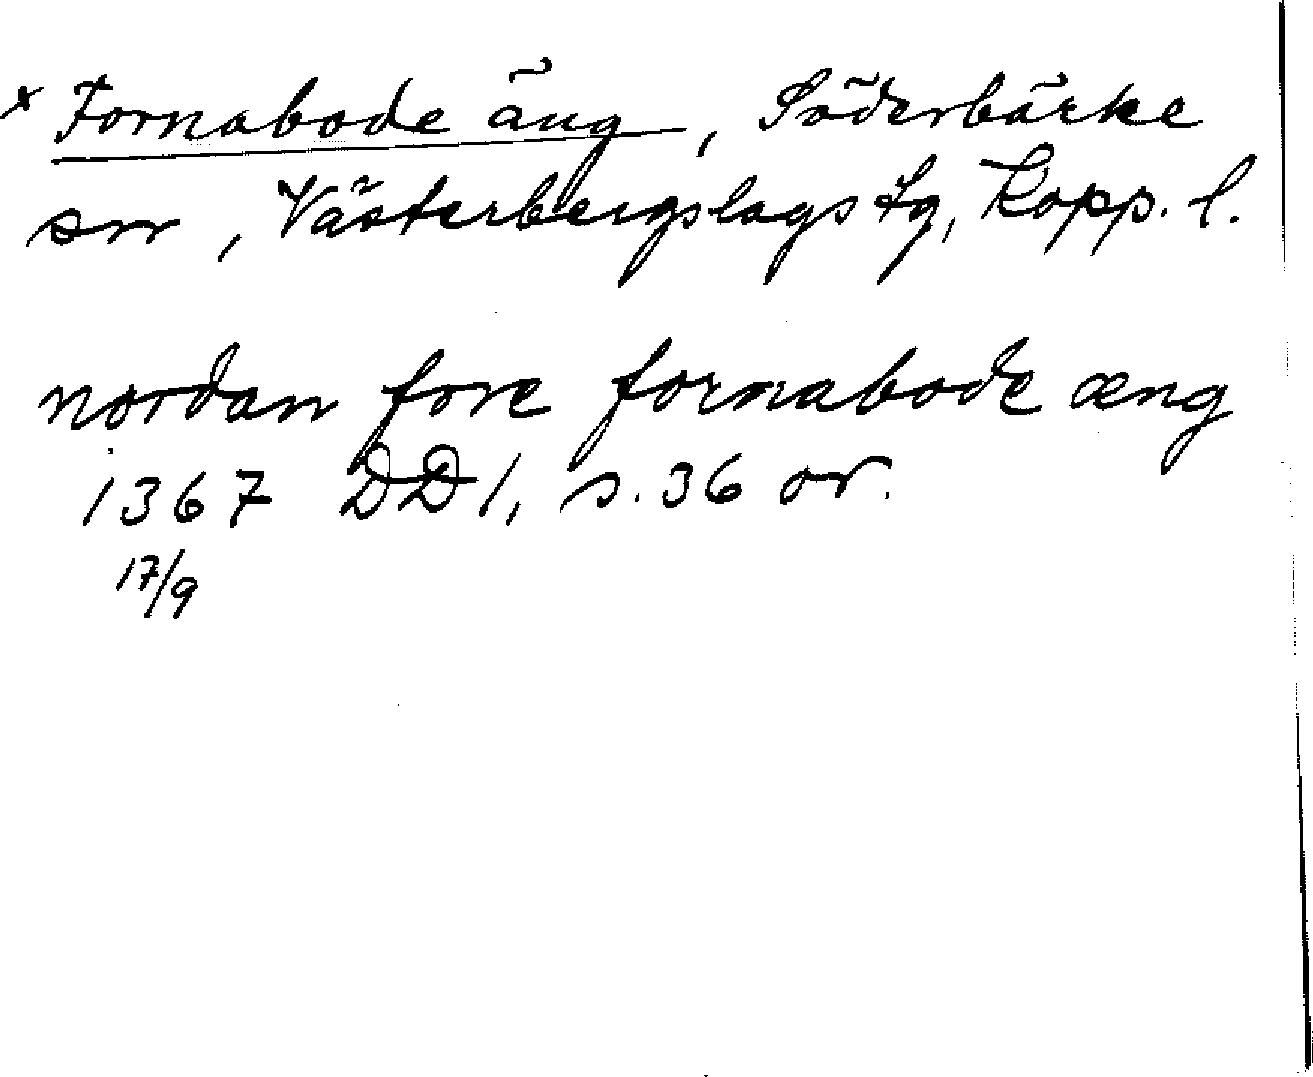 x Fornabode äng, Söderbärke
sn, Västerbergslags tg, Kopp. l.
nordan fore fornabode æng
1367 DD 1, s. 36 or.
17/9